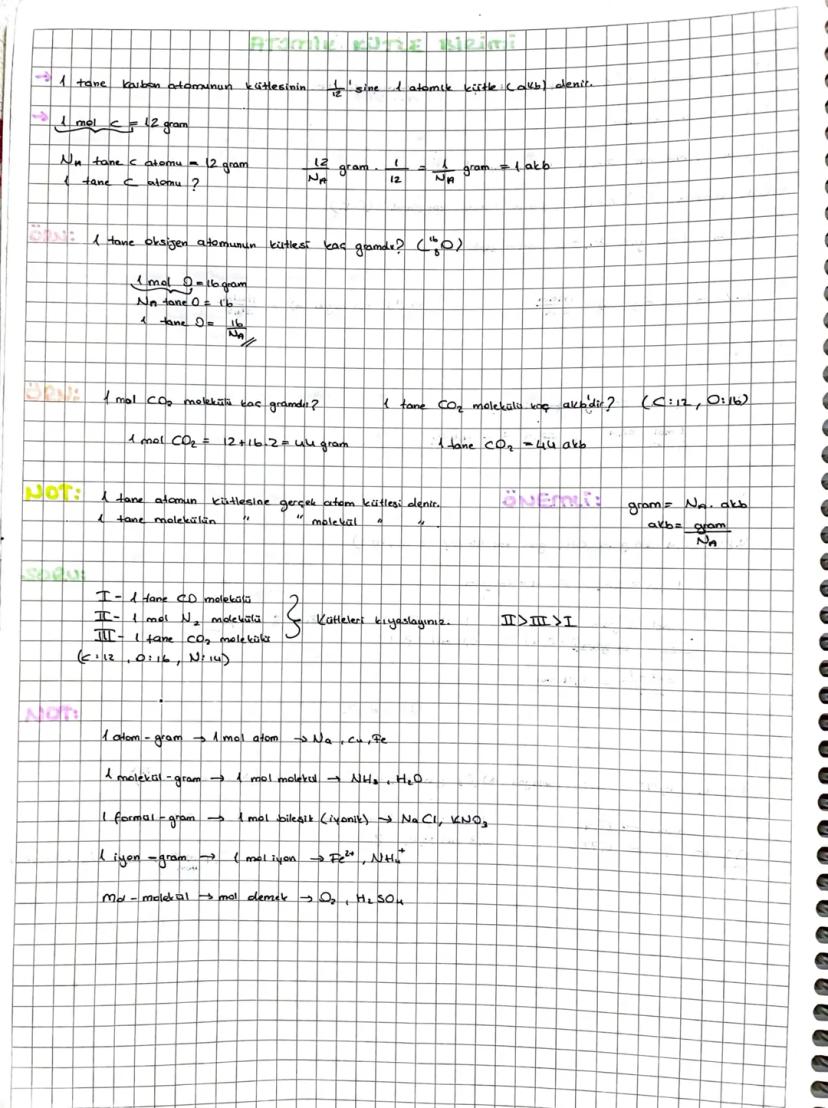 ATOMİK KÜTLE BİRİMİ
→ 1 tane karbon atomunun kütlesinin 1/12'sine 1 atomik kütle (akb) denir.
→ 1 mol C = 12 gram
NA tane C atomu = 12 gram 12/NA gram . 1/12 = 1/NA gram = 1 akb
1 tane C atomu ?
1 tane oksijen atomunun kütlesi kaç gramdır? (¹⁶₈O)
1 mol O = 16 gram
NA tane O = 16
1 tane O = 16/NA //
1 mol CO₂ molekülü kaç gramdır? 1 tane CO₂ molekülü kaç akb'dir? (C:12, O:16)
1 mol CO₂ = 12+16.2 = 44 gram 1 tane CO₂ = 44 akb
NOT: 1 tane atomun kütlesine gerçek atom kütlesi denir. ÖNEMLİ: gram = NA . akb
1 tane molekülün " " molekül " ". akb = gram/NA
SORU:
I - 1 tane CO molekülü
II - 1 mol N₂ molekülü } Kütleleri kıyaslayınız. II > III > I
III - 1 tane CO₂ molekülü
(C:12, O:16, N:14)
NOT:
1 atom-gram → 1 mol atom → Na, Cu, Fe
1 molekül-gram → 1 mol molekül → NH₃, H₂O
1 formül-gram → 1 mol bileşik (iyonik) → NaCl, KNO₃
1 iyon-gram → 1 mol iyon → Fe²⁺, NH₄⁺
Mol-molekül → mol demek → O₂, H₂SO₄